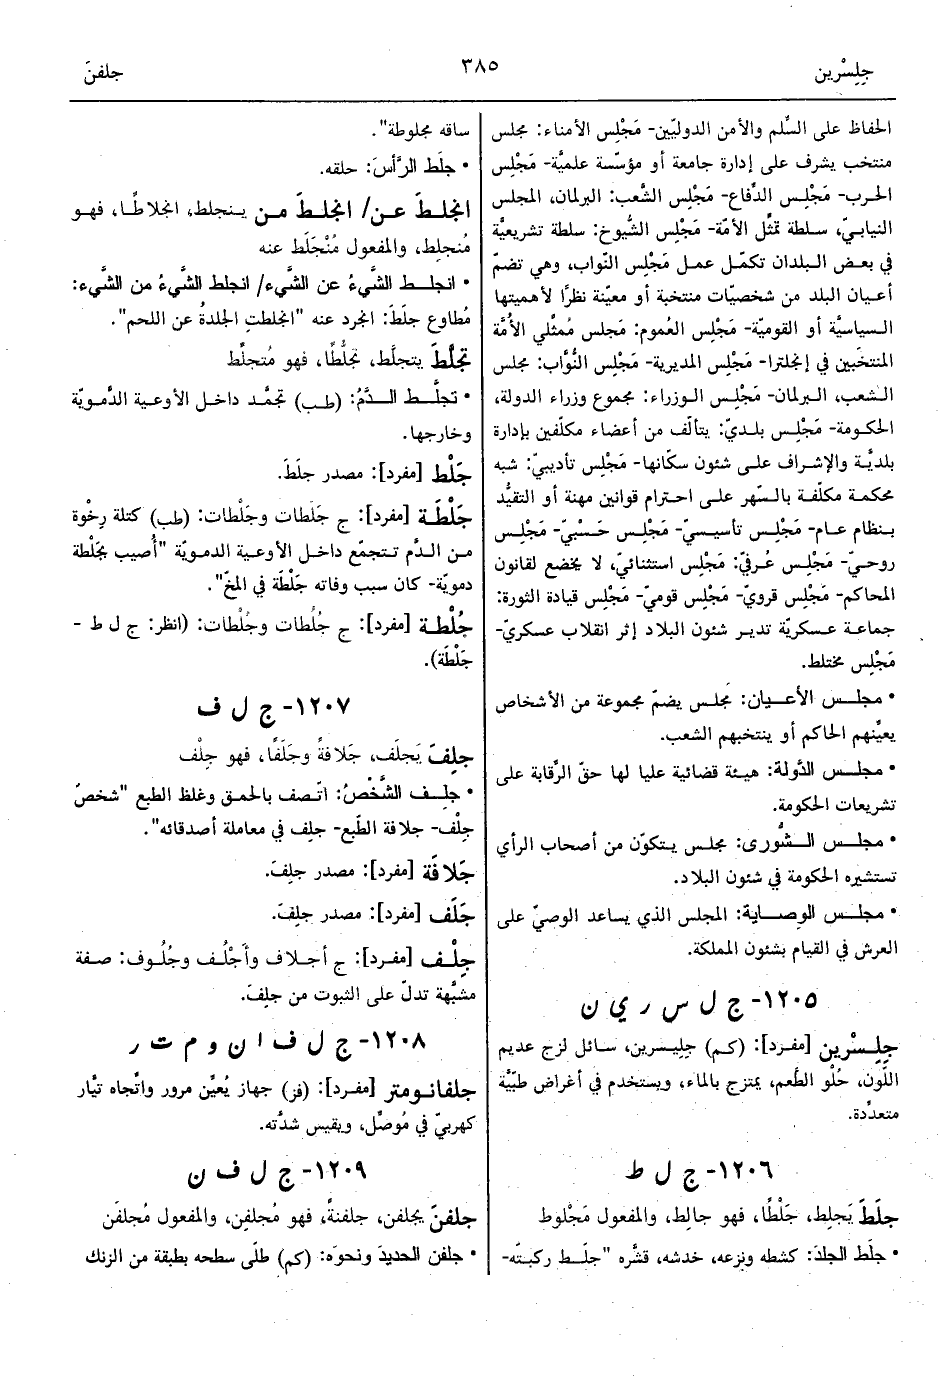 جِلِسْرين
٣٨٥
جلفنَ
الحفاظ على السِّلم والأمن الدوليّين- مَجْلِس الأمناء: مجلس
منتخب يشرف على إدارة جامعة أو مؤسّسة علميَّة- مَجْلِس
الحرب- مَجْلِس الدِّفاع- مَجْلِس الشَّعب: البرلمان، المجلس
النيابيّ، سلطة تمثِّل الأمّة- مَجْلِس الشُّيوخ: سلطة تشريعيَّة
في بعض البلدان تكمّل عمل مَجْلِس النّواب، وهي تضمّ
أعيان البلد من شخصيّات منتخبة أو معيّنة نظرًا لأهميتها
السياسيَّة أو القوميّة- مَجْلِس العُموم: مَجلس مُمثّلي الأمَّة
المنتخَبين في إنجلترا- مَجْلِس المديرية- مَجْلِس النُّوَّاب: مجلس
الشعب، البرلمان- مَجْلِس الوزراء: مجموع وزراء الدولة،
الحكومة- مَجْلِس بلديّ: يتألّف من أعضاء مكلّفين بإدارة
بلديَّة والإشراف على شئون سكّانها- مَجْلِس تأديبيّ: شبه
محكمة مكلّفة بالسّهر على احترام قوانين مهنة أو التقيُّد
بنظام عام- مَجْلِس تأسيسيّ- مَجْلِس حَسْبيّ- مَجْلِس
روحيّ- مَجْلِس عُرفيّ: مَجْلِس استثنائيّ، لا يخضع لقانون
المحاكم- مَجْلِس قرويّ- مَجْلِس قوميّ- مَجْلِس قيادة الثورة:
جماعة عسكريّة تدير شئون البلاد إثر انقلاب عسكريّ-
مَجْلِس مختلط.
• مجلس الأعيان: مَجلس يضمّ مجموعة من الأشخاص
يعيِّنهم الحاكم أو ينتخبهم الشعب.
• مجلس الدَّولة: هيئة قضائية عليا لها حقّ الرَّقابة على
تشريعات الحكومة.
• مجلس الشُّورى: مجلس يتكوّن من أصحاب الرأي
تستشيره الحكومة في شئون البلاد.
• مجلس الوصاية: المجلس الذي يساعد الوصيّ على
العرش في القيام بشئون المملكة.
١٢٠٥- ج ل س ر ي ن
جِلِسْرين [مفرد]: (كم) جليسرين، سائل لزج عديم
اللّون، حُلْو الطَّعم، يمتزج بالماء، ويستخدم في أغراض طبّيَّة
متعدِّدة.
١٢٠٦- ج ل ط
جلَطَ يَجلِط، جَلْطًا، فهو جالط، والمفعول مَجْلوط
• جلَط الجلدَ: كشطه ونزعه، خدشه، قشَّره "جلَط ركبتَه-
ساقه مجلوطة".
• جلَط الرَّأسَ: حلقه.
انجلطَ عن/ انجلطَ من ينجلط، انجلاطًا، فهو
مُنجلِط، والمفعول مُنْجَلَط عنه
• انجلط الشَّيءُ عن الشَّيء/ انجلط الشَّيءُ من الشَّيء:
مُطاوع جلَطَ: انجرد عنه "انجلطتِ الجلدةُ عن اللحم".
تجلَّطَ يتجلَّط، تجلُّطًا، فهو مُتجلِّط
• تجلَّط الدَّمُ: (طب) تجمَّد داخل الأوعية الدَّمويّة
وخارجها.
جَلْط [مفرد]: مصدر جلَطَ.
جَلْطَة [مفرد]: ج جَلَطات وجَلْطات: (طب) كتلة رِخْوة
من الدَّم تتجمّع داخل الأوعية الدمويّة "أُصيب بجَلْطة
دمويّة- كان سبب وفاته جَلْطة في المخّ".
جُلْطة [مفرد]: ج جُلُطات وجُلْطات: (انظر: ج ل ط -
جَلْطَة).
١٢٠٧- ج ل ف
جلِفَ يَجلَف، جَلافةً وجَلَفًا، فهو جِلْف
• جلِف الشَّخْصُ: اتّصف بالحمق وغلظ الطبع "شخصٌ
جِلْف- جلافة الطّبع- جلِف في معاملة أصدقائه".
جَلافَة [مفرد]: مصدر جلِفَ.
جَلَف [مفرد]: مصدر جلِفَ.
جِلْف [مفرد]: ج أجلاف وأجْلُف وجُلُوف: صفة
مشبَّهة تدلّ على الثبوت من جلِفَ.
١٢٠٨- ج ل ف ا ن و م ت ر
جلفانومتر [مفرد]: (فز) جهاز يُعيِّن مرور واتَّجاه تيَّار
كهربيّ في مُوصِّل، ويقيس شدَّته.
١٢٠٩- ج ل ف ن
جلفنَ يجلفن، جلفنةً، فهو مُجلفِن، والمفعول مُجلفَن
• جلفن الحديدَ ونحوَه: (كم) طلّى سطحه بطبقة من الزنك